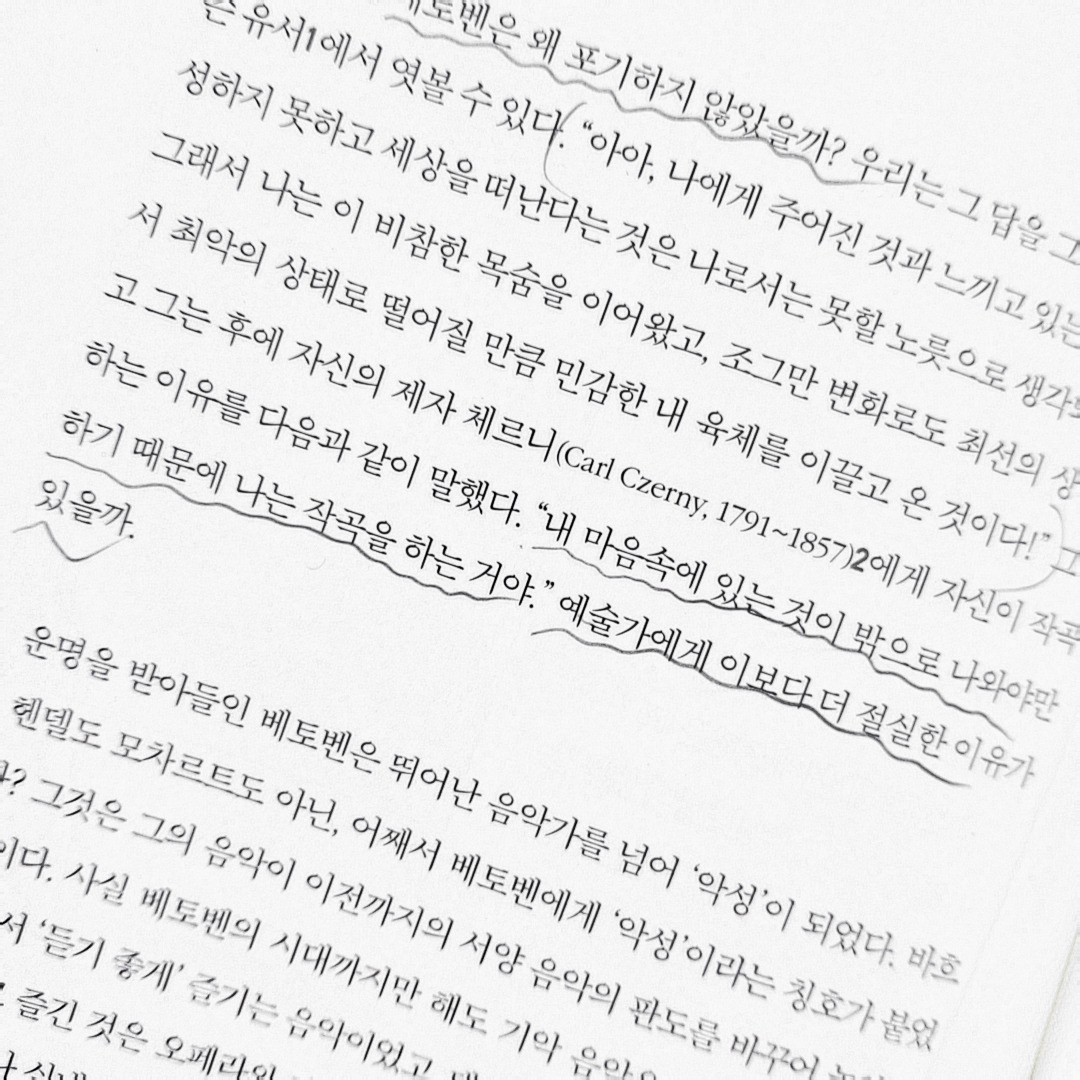 베토벤은 왜 포기하지 않았을까? 우리는 그 답을 그
유서1에서 엿볼 수 있다. “아아, 나에게 주어진 것과 느끼고 있는
성하지 못하고 세상을 떠난다는 것은 나로서는 못할 노릇으로 생각되
그래서 나는 이 비참한 목숨을 이어왔고, 조그만 변화로도 최선의 상
서 최악의 상태로 떨어질 만큼 민감한 내 육체를 이끌고 온 것이다!” 그
고 그는 후에 자신의 제자 체르니(Carl Czerny, 1791~1857)2에게 자신이 작곡
하는 이유를 다음과 같이 말했다. “내 마음속에 있는 것이 밖으로 나와야만
하기 때문에 나는 작곡을 하는 거야.” 예술가에게 이보다 더 절실한 이유가
있을까.
운명을 받아들인 베토벤은 뛰어난 음악가를 넘어 ‘악성’이 되었다. 바흐
헨델도 모차르트도 아닌, 어째서 베토벤에게 ‘악성’이라는 칭호가 붙었
? 그것은 그의 음악이 이전까지의 서양 음악의 판도를 바꾸어
이다. 사실 베토벤의 시대까지만 해도 기악
서 ‘듣기 좋게’ 즐기는 음악이었고
즐긴 것은 오페라와